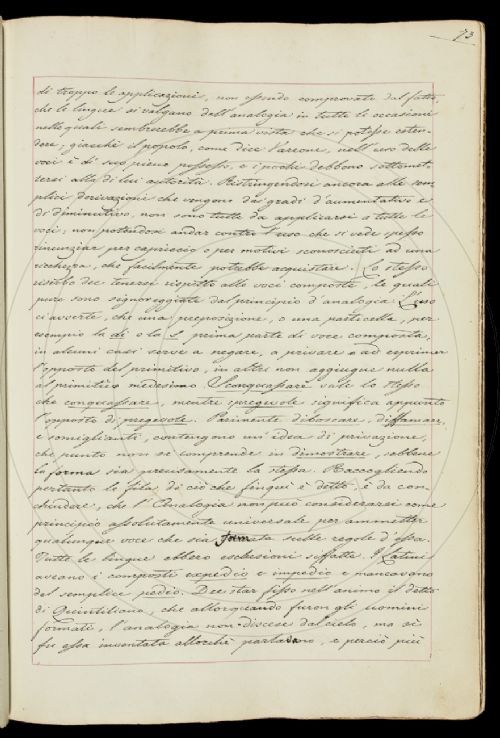 73
di troppo le applicazioni, non essendo comprovate dal fatto,
che le lingue si valgano dell'analogia in tutte le occasioni
nelle quali sembrerebbe a prima vista che si potesse esten-
dere; giacchè il popolo, come dice Varrone, nell'uso delle
voci è di suo pieno possesso, e i pochi debbono sottomet-
tersi alla di lui autorità. Restringendosi ancora alle sem-
plici derivazioni che vengono da' gradi d'aumentativo e
di diminutivo, non sono tutte da applicarsi a tutte le
voci; non potendosi andar contro l'uso che si vede spesso
rinunziar per capriccio o per motivi sconosciuti ad una
ricchezza, che facilmente potrebbe acquistare. Lo stesso
riserbo dee tenersi rispetto alle voci composte, le quali
pure sono signoreggiate dal principio d'analogia. L'uso
ci avverte, che una preposizione, o una particella, per
esempio la di o la s, prima parte di voce composta,
in alcuni casi serve a negare, a privare o ad esprimer
l'opposto del primitivo, in altri non aggiugne nulla
al primitivo medesimo. Scongrassare vale lo stesso
che congrassare, mentre spregevole significa appunto
l'opposto di pregevole. Parimente disossare, diffamare,
e somiglianti, contengono un'idea di privazione,
che punto non si comprende in dimostrare, sebbene
la forma sia precisamente la stessa. Raccogliendo
pertanto le fila di ciò che finqui è detto, è da con-
chiudere, che l'Analogia non può considerarsi come
principio assolutamente universale per ammetter
qualunque voce che sia formata sulle regole d'essa.
Tutte le lingue ebbero esclusioni siffatte. I Latini
aveano i composti expedio e impedio e mancavano
del semplice pedio. Dee star fisso nell'animo il detto
di Quintiliano, che allorquando furon gli uomini
formati, l'analogia non discese dal cielo, ma si
fu essa inventata allorchè parlavano, e perciò più